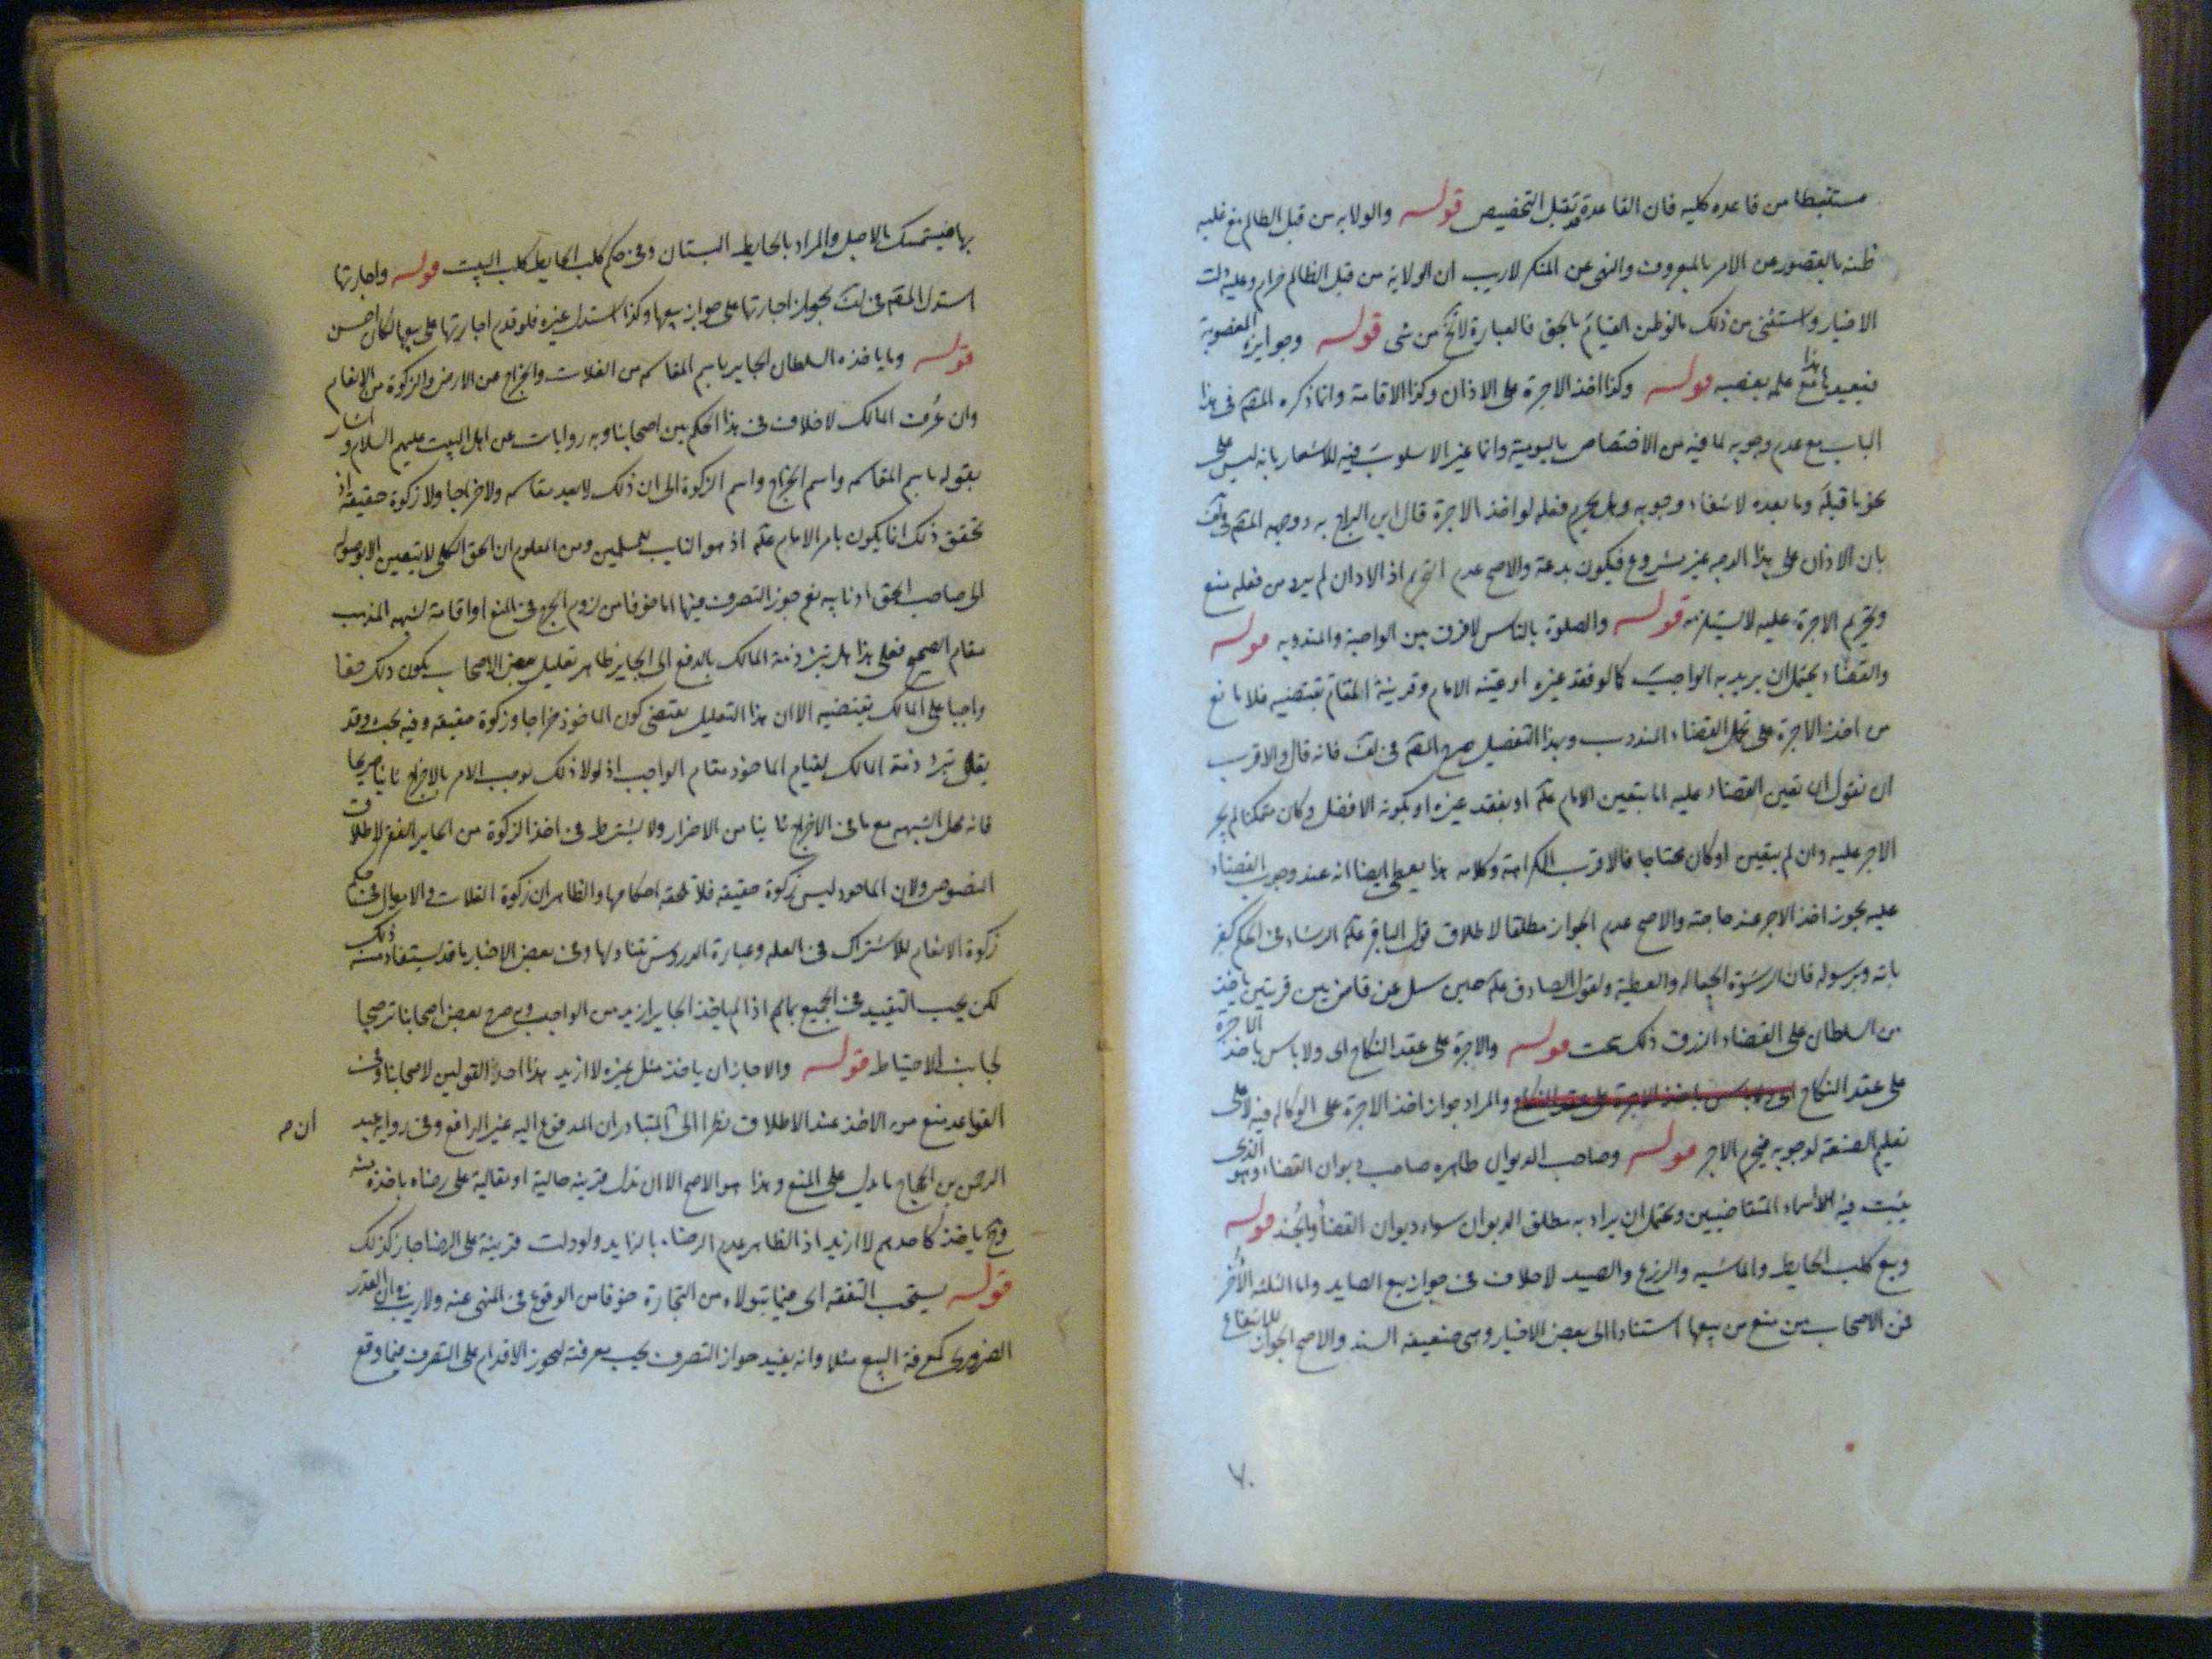 مستنبطا من قاعده كليه فان القاعدة قد تقبل التخصيص قوله والولايه من قبل الظالم مع غلبه
ظنه بالقصور عن الامر بالمعروف والنهى عن المنكر لاريب ان الولاية من قبل الظالم حرام وعليه دلت
الاخبار واستثنى من ذلك بالوظن القيام بالحق فالعبارة لاتخ من شى قوله وجوايزه المغصوبة
فيعيدها مع علمه بغصبه قوله وكذا اخذ الاجرة على الاذان وكذا الاقامة وانما ذكره المصم فى هذا
الباب مع عدم وجوبه لما فيه من الاختصاص وانما غير الاسلوب فيه للاشعار بانه ليس على
نحو ما قبله وما بعده لانتفاء وجوبه وهل يحرم فعله لو اخذ الاجرة قال ابن البراج به ووجهه المصم فى لف
بان الاذان على هذا الوجه غير مشروع فيكون بدعة والاصح عدم التحريم اذ الاذان لم يرد من فعله منع
وتحريم الاجرة عليه لا يستلزمه قوله والصلوة بالناس لا فرق بين الواجبة والمندوبه قوله
والقضاء يحتمل ان يريد به الواجب كما لو فقد غيره او عينه الامام وقرينة المقام تقتضيه فلا مانع
من اخذ الاجرة على القضاء المندوب وبهذا التفصيل صرح المصم فى لف فانه قال والاقرب
ان نقول ان تعين القضاء عليه اما بتعيين الامام علم او بفقد غيره او بكونه الافضل وكان متمكنا لم يجز
الاجر عليه وان لم يتعين او كان محتاجا فالاقرب الكراهة وكلامه هذا يعطى ايضا انه عند وجوب القضاء
عليه يجوز اخذ الاجر عند حاجته والاصح عدم الجواز مطلقا لاطلاق قول الباقر علم الرشاء فى الحكم كفر
بالله وبرسوله فان الرشوة الجعاله والعطية ولقول الصادق علم حين سئل عن قاض بين قريتين ياخذ
من السلطان على القضاء الرزق ذلك سحت قوله والاجرة على عقد النكاح اى ولا باس باخذ الاجرة
على عقد النكاح اى ولا باس باخذ الاجرة على عقد النكاح والمراد جواز اخذ الاجرة على الوكاله فيه لا على
تعليم الصنعة لوجوبه فيحرم الاجر قوله وصاحب الديوان ظاهره صاحب ديوان القضاء وهو الذى
يثبت فيه اسماء المتقاضيين ويحتمل ان يراد به مطلق الديوان سواء ديوان القضاء والجند قوله
وبيع كلب الحايط والماشيه والزرع والصيد لا خلاف فى جواز بيع الصايد واما الثلثه الأخر
فمن الاصحاب من منع من بيعها استنادا الى بعض الاخبار وهى ضعيفه السند والاصح الجواز للانتفاع
٧٠
بها فيتمسك بالاصل والمراد بالحايط البستان وفى حكم كلب الحايط كلب البيت قوله واجارتها
استدل المصم فى لف بجواز اجارتها على جواز بيعها وكذا استدل غيره فلو قدم اجارتها على بيعها لكان احسن
قوله وما ياخذه السلطان الجاير باسم المقاسمه من الغلات والخراج عن الارض والزكوة من الانعام
وان عُرف المالك لا خلاف فى هذا الحكم بين اصحابنا وبه روايات عن اهل البيت عليهم السلام واشار
بقوله باسم المقاسمه واسم الخراج واسم الزكوة الى ان ذلك لا يعد مقاسمه ولا خراجا ولا زكوة حقيقة اذ
تحقق ذلك انما يكون بامر الامام علم اذ هو النايب للمسلمين ومن المعلوم ان الحق الكلى لا يتعين الا بوصوله
الى صاحب الحق او نايبه نعم جوز التصرف فيها اما خوفا من لزوم الحرج فى المنع او اقامة لشبهه المذهب
مقام الصحيح فعلى هذا هل تبرء ذمة المالك بالدفع الى الجاير ظاهر تعليل بعض الاصحاب بكون ذلك حقا
واجبا على المالك يقتضيه الا ان هذا التعليل يقتضى كون الماخوذ خراجا وزكوة حقيقه وفيه بحث وقد
يقال تبرء ذمة المالك لقيام الماخوذ مقام الواجب اذ لولا ذلك لوجب الامر بالاخراج ثانيا صريحا
فانه محل الشبهه مع ما فى الاخراج ثانيا من الاضرار ولا يشترط فى اخذ الزكوة من الجاير الفقر لاطلاق
النصوص ولان الماخوذ ليس زكوة حقيقه فلا تلحقه احكامها والظاهر ان زكوة الغلات والاموال فى حكم
زكوة الانعام للاشتراك فى العله وعبارة الدروس تتناولها وفى بعض الاخبار ما قد يستفاد منه ذلك
لكن يجب التقييد فى الجميع بما لم اذا لم ياخذ الجاير ازيد من الواجب وبه صرح بعض اصحابنا ترجيحا
لجانب الاحتياط قوله والا جاز ان ياخذ مثل غيره لا ازيد هذا احد القولين لاصحابنا وفى
القواعد منع من الاخذ عند الاطلاق نظرا الى ان المتبادر ان المدفوع اليه غير الدافع وفى رواية عبد
الرحمن بن الحجاج ما يدل على المنع وهذا هو الاصح الا ان تدل قرينه حالية او مقالية على رضاه باخذه منه
وح ياخذ كاحدهم لا ازيد اذ الظاهر عدم الرضاء بالزايد ولو دلت قرينة على الرضا جاز كذلك
قوله يستحب التفقه اى فيما يتولاه من التجارة خوفا من الوقوع فى المنهى عنه ولاريب فى ان القدر
الضرورى كمعرفة البيع مثلا وانه يفيد جواز التصرف يجب معرفته ليجوز الاقدام على التصرف فيما وقع